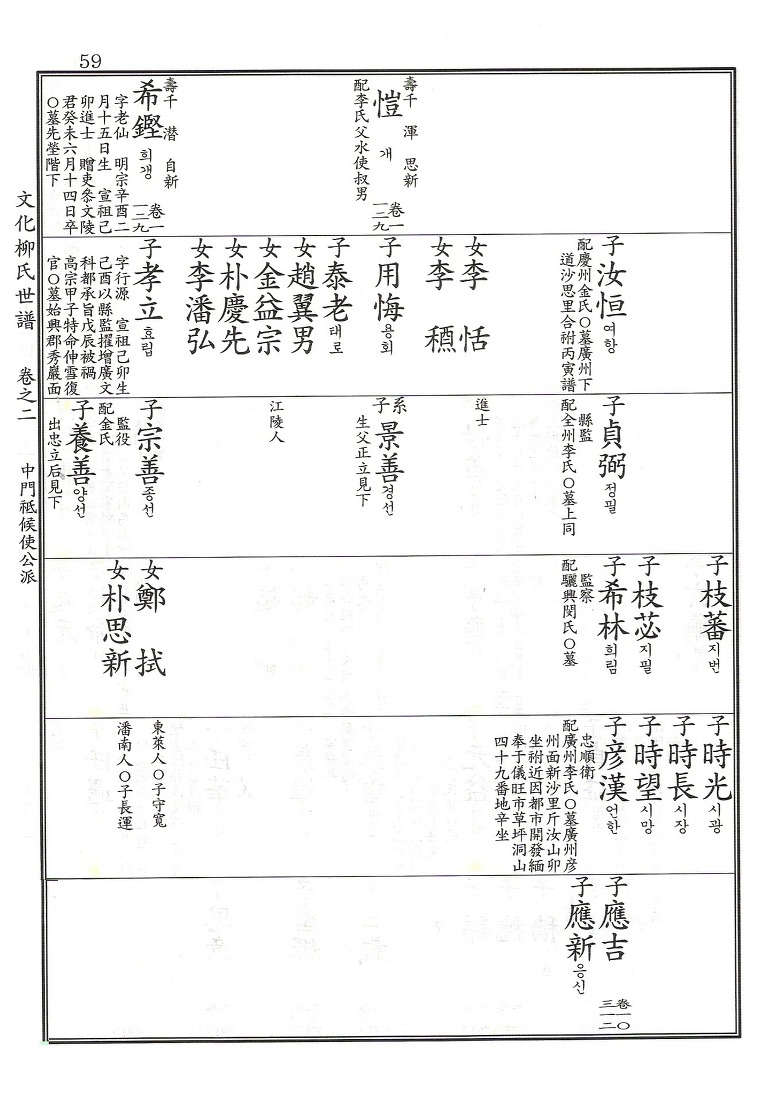 59
壽千 渾 思新
愷 개
卷一 一二九
配李氏父水使叔男
壽千 潜 自新
希鏗 희갱
卷一 一二九
字老仙 明宗辛酉二
月十五日生 宣祖己
卯進士 贈吏叅文陵
君癸未六月十四日卒
○墓先塋階下
子汝恒 여항
配慶州金氏○墓廣州下
道沙思里合祔丙寅譜
女李 恬
女李 穩
子用悔 용회
子泰老 태로
女趙翼男
女金益宗
女朴慶先
女李潘弘
子孝立 효립
字行源 宣祖己卯生
己酉以縣監擢增廣文
科都承旨戊辰被禍
高宗甲子特命伸雪復
官○墓始興郡秀巖面
子貞弼 정필
縣監
配全州李氏○墓上同
進士
系子景善 경선
生父正立見下
江陵人
子宗善 종선
監役
配金氏
子養善 양선
出忠立后見下
子枝蕃 지번
子枝苾 지필
子希林 희림
監察
配驪興閔氏○墓
女鄭 拭
女朴思新
子時光 시광
子時長 시장
子時望 시망
子彦漢 언한
忠順衛
配廣州李氏○墓廣州彦
州面新沙里斤汝山卯
坐祔近因都市開發緬
奉于儀旺市草坪洞山
四十九番地辛坐
東萊人○子守寬
潘南人○子長運
子應吉
卷一〇 三一二
子應新 응신
文化柳氏世譜 卷之二 中門祗候使公派